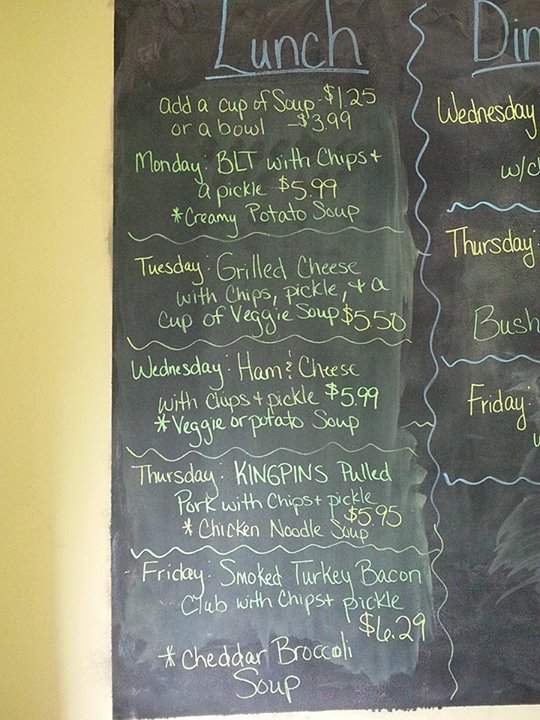 Lunch
add a cup of Soup - $1.25
or a bowl - $3.99
Monday: BLT with Chips +
a pickle $5.99
*Creamy Potato Soup
Tuesday: Grilled Cheese
with Chips, pickle, + a
Cup of Veggie Soup $5.50
Wednesday: Ham & Cheese
with Chips + pickle $5.99
*Veggie or potato Soup
Thursday: KINGPINS Pulled
Pork with Chips + pickle
$5.95
* Chicken Noodle Soup
Friday: Smoked Turkey Bacon
Club with Chips + pickle
$6.29
* Cheddar Broccoli
Soup
Din
Wednesday
w/c
Thursday:
Bush
Friday: